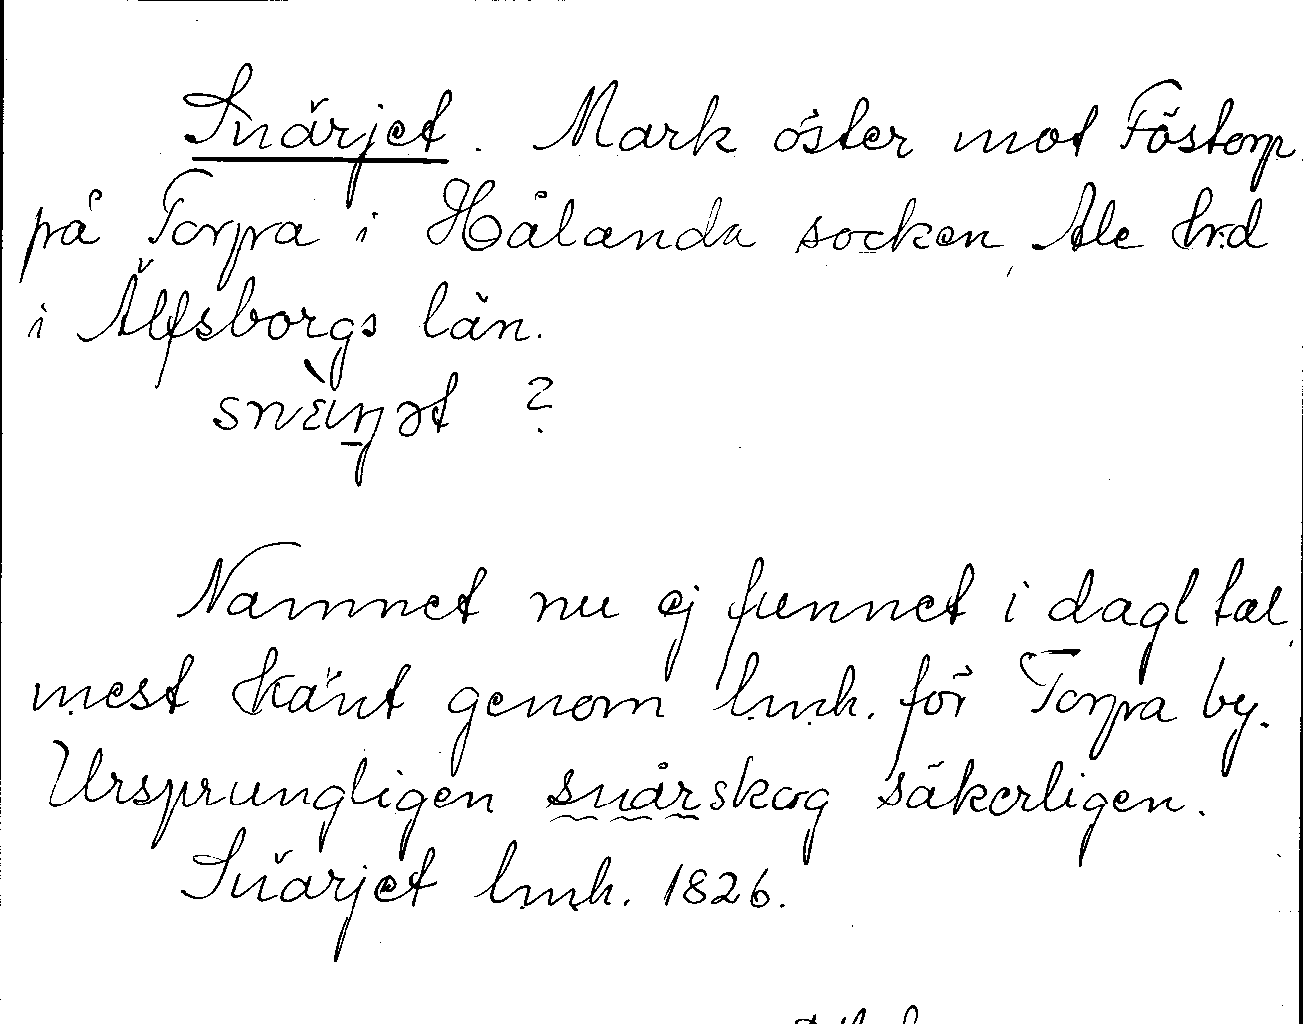 Snärjet. Mark öster mot Föstorp
på Torpa i Hålanda socken, Ale hrd
i Älfsborgs län.
?
Namnet nu ej funnet i dagl tal,
mest känt genom lmh. för Torpa by.
Ursprungligen snårskog säkerligen.
Snärjet lmh. 1826.